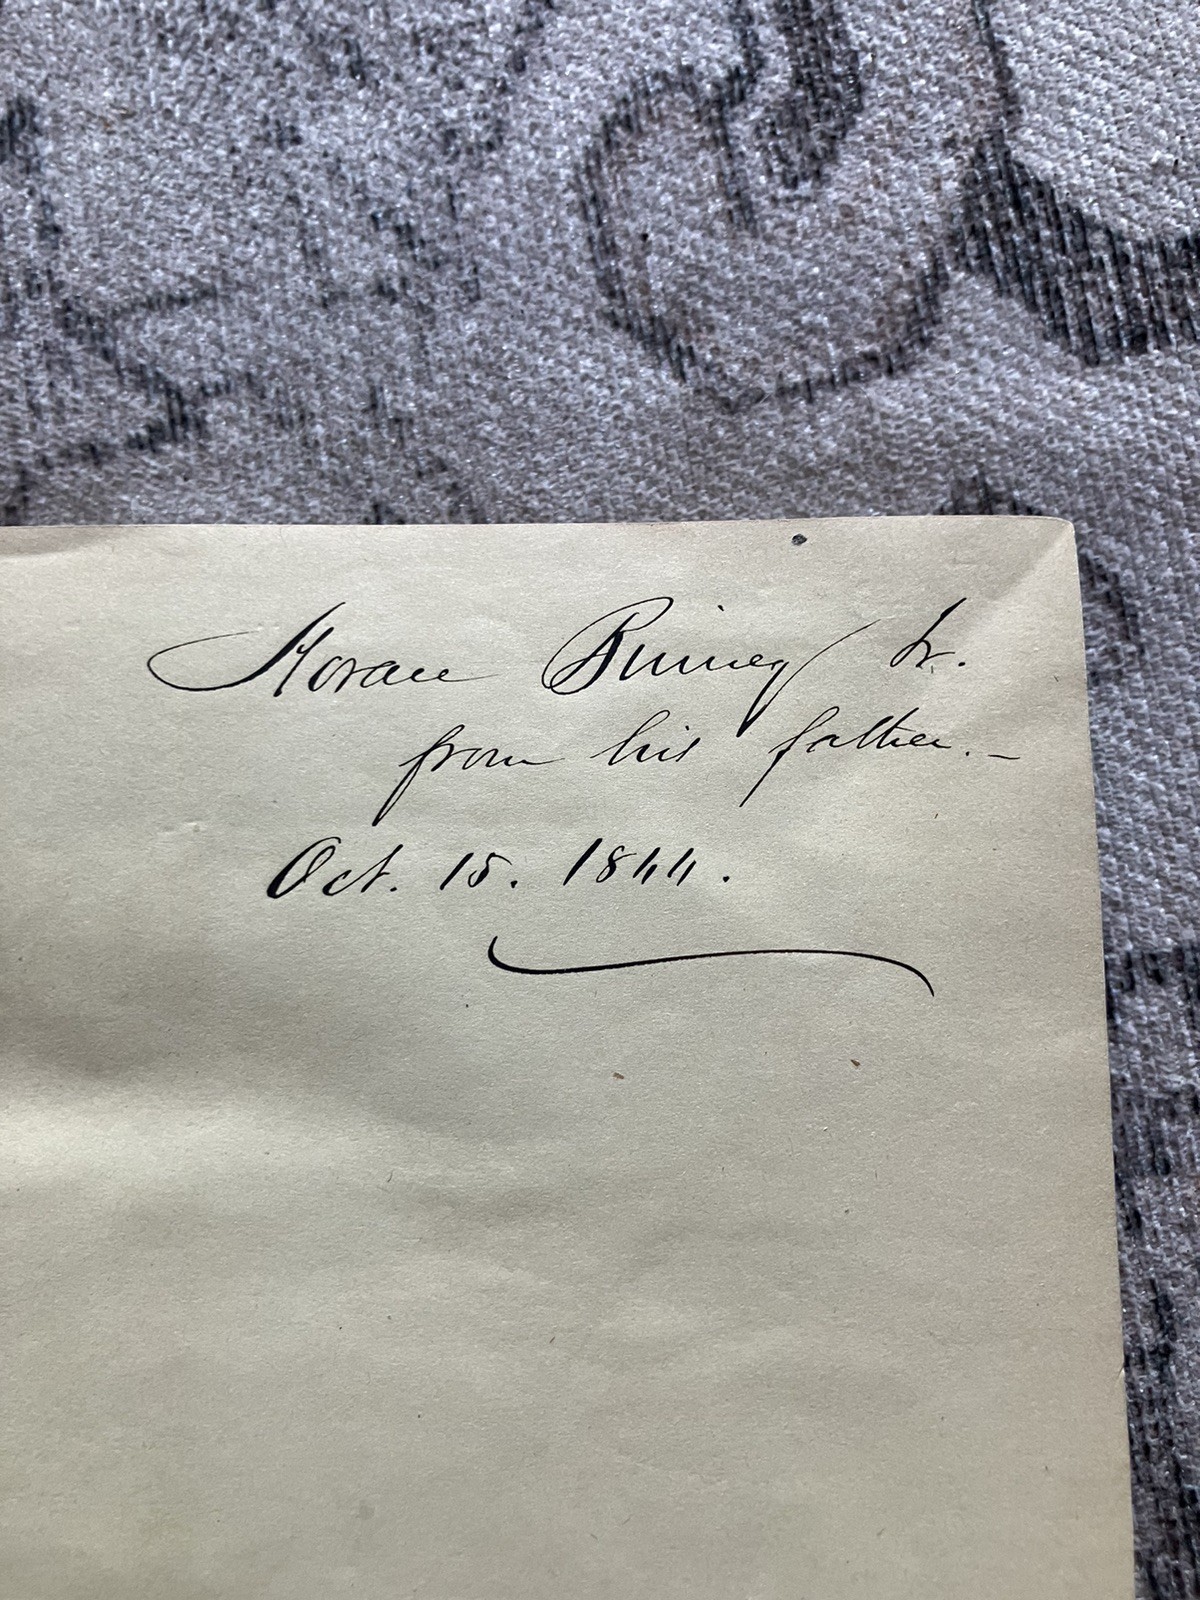 Horace Binney Jr.
from his father. –
Oct. 15. 1844.